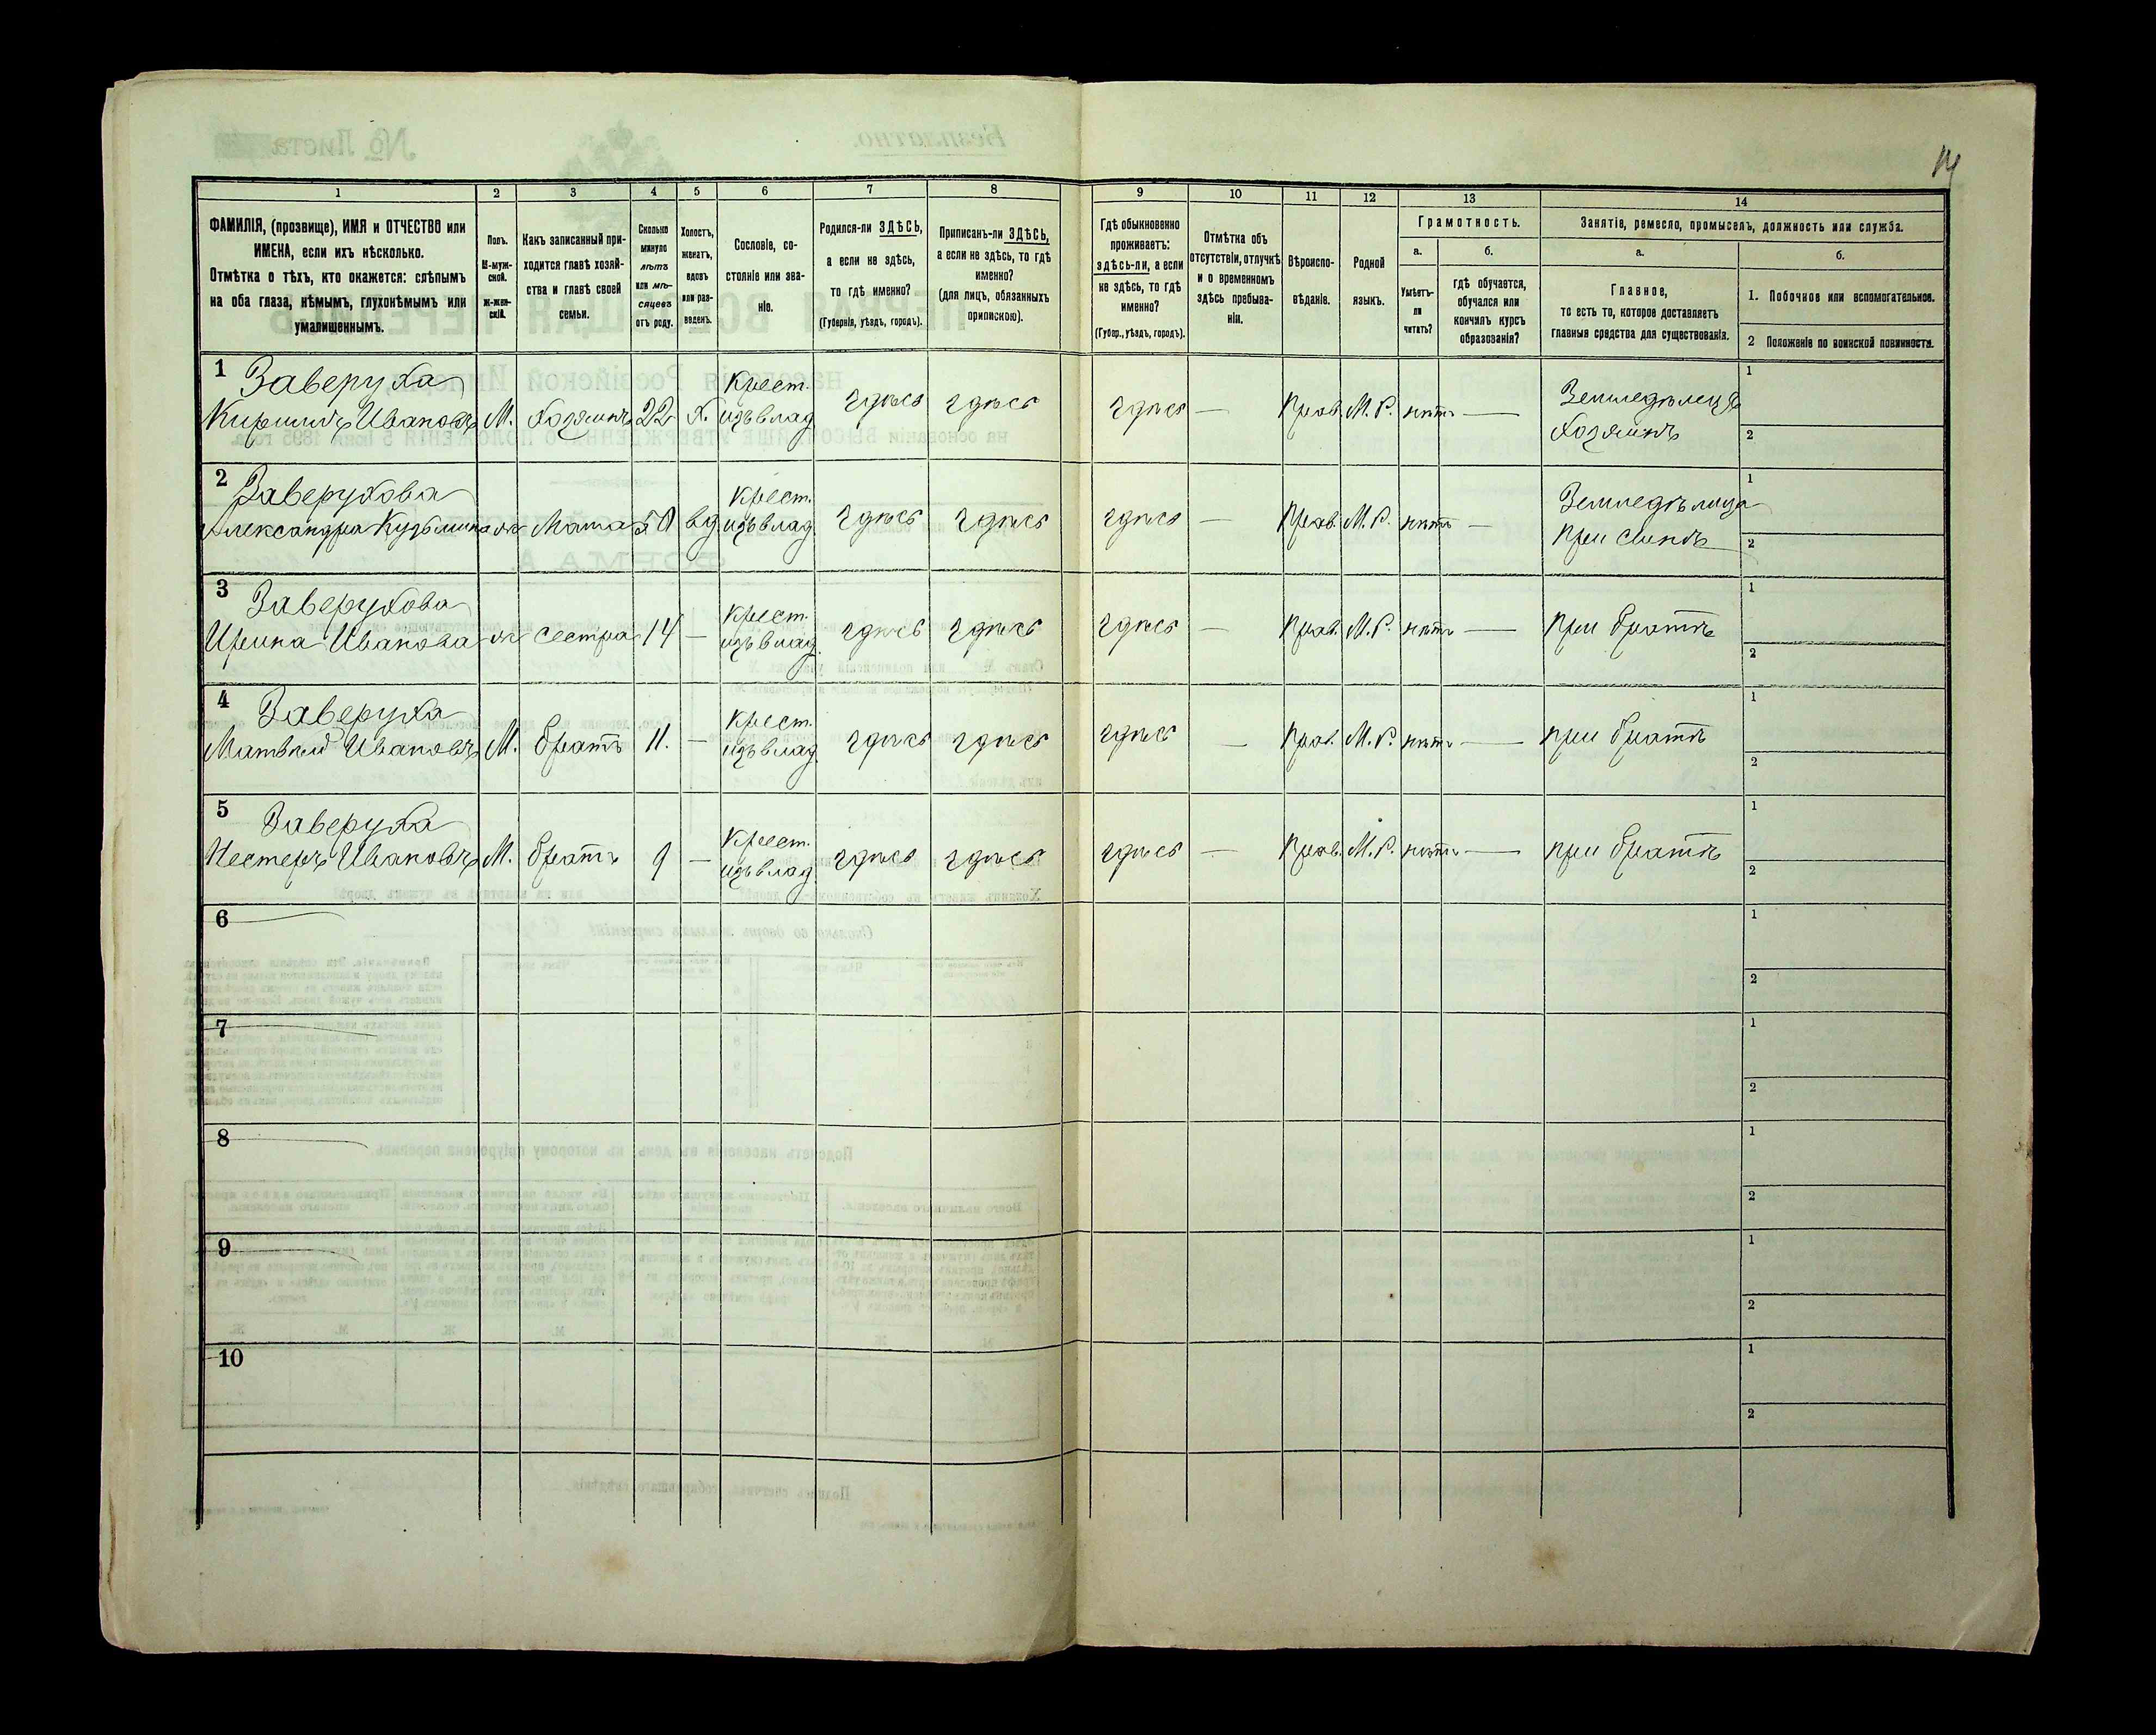 14
1 2 3 4 5 6 7 8 9 10 11 12 13 14
ФАМИЛІЯ, (прозвище), ИМЯ и ОТЧЕСТВО или
ИМЕНА, если ихъ нѣсколько.
Отмѣтка о тѣхъ, кто окажется: слѣпымъ
на оба глаза, нѣмымъ, глухонѣмымъ или
умалишеннымъ.
Полъ.
М-муж-
ской.
ж-жен-
скій.
Какъ записанный при-
ходится главѣ хозяй-
ства и главѣ своей
семьи.
Сколько
минуло
лѣтъ
или мѣ-
сяцевъ
отъ роду.
Холостъ,
женатъ,
вдовъ
или раз-
веденъ.
Сословіе, со-
стояніе или зва-
ніе.
Родился-ли ЗДѢСЬ,
а если не здѣсь,
то гдѣ именно?
(Губернія, уѣздъ, городъ).
Приписанъ-ли ЗДѢСЬ,
а если не здѣсь, то гдѣ
именно?
(для лицъ, обязанныхъ
припискою).
Гдѣ обыкновенно
проживаетъ:
здѣсь-ли, а если
не здѣсь, то гдѣ
именно?
(Губер., уѣздъ, городъ).
Отмѣтка объ
отсутствіи, отлучкѣ
и о временномъ
здѣсь пребыва-
ніи.
Вѣроиспо-
вѣданіе.
Родной
языкъ.
Грамотность.
а.
Умѣетъ-
ли
читать?
б.
гдѣ обучается,
обучался или
кончилъ курсъ
образованія?
Занятіе, ремесло, промыселъ, должность или служба.
а.
Главное,
то есть то, которое доставляетъ
главныя средства для существованія.
б.
1. Побочное или вспомогательное.
2 Положеніе по воинской повинности.
1 Заверуха Крест. Земледѣлецъ 1
Кирилъ Ивановъ М. Хозяинъ 22 Х. изъ влад. здѣсь здѣсь здѣсь — Прав. М. Р. нѣтъ — Хозяинъ 2
2 Заверухова Крест. Земледѣлица 1
Александра Кузьмина ж Мать 50 вд. изъ влад. здѣсь здѣсь здѣсь — Прав. М. Р. нѣтъ — При сынѣ 2
3 Заверухова Крест. 1
Ирина Иванова ж сестра 14 — изъ влад. здѣсь здѣсь здѣсь — Прав. М. Р. нѣтъ — При братѣ 2
4 Заверуха Крест. 1
Матвѣй Ивановъ М. братъ 11. — изъ влад. здѣсь здѣсь здѣсь — Прав. М. Р. нѣтъ — при братѣ 2
5 Заверуха Крест. 1
Нестеръ Ивановъ М. братъ 9 — изъ влад. здѣсь здѣсь здѣсь — Прав. М. Р. нѣтъ — при братѣ 2
6 1
2
7 1
2
8 1
2
9 1
2
10 1
2